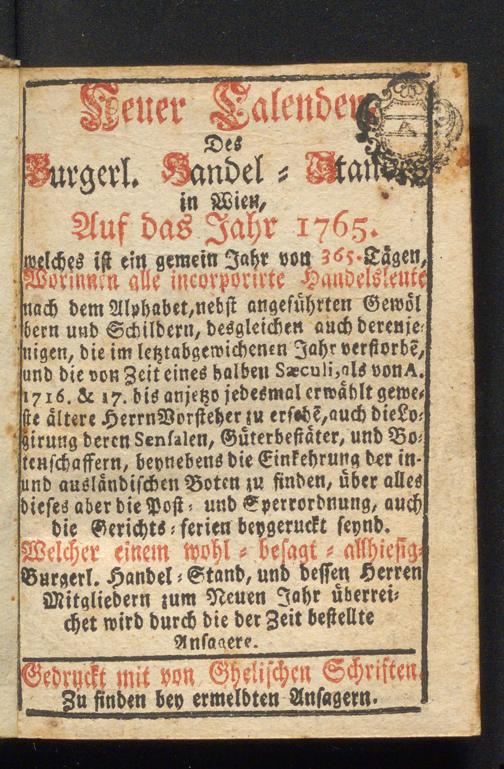 Neuer Calender
Des
Burgerl. Handel = Stands
in Wien,
Auf das Jahr 1765.
welches ist ein gemein Jahr von 365. Tägen,
Worinnen alle incorporirte Handelsleute
nach dem Alphabet, nebst angeführten Gewöl
bern und Schildern, desgleichen auch derenje-
nigen, die im letztabgewichenen Jahr verstorbē,
und die von Zeit eines halben Sæculi, als von A.
1716. & 17. bis anjetzo jedesmal erwählt gewe-
ste ältere Herrn Vorsteher zu ersehē, auch die Lo-
girung deren Sensalen, Güterbestäter, und Bo-
tenschaffern, beynebens die Einkehrung der in-
und ausländischen Boten zu finden, über alles
dieses aber die Post- und Sperrordnung, auch
die Gerichts-ferien beygeruckt seynd.
Welcher einem wohl = besagt = allhiesig-
Burgerl. Handel-Stand, und dessen Herren
Mitgliedern zum Neuen Jahr überrei-
chet wird durch die der Zeit bestellte
Ansagere.
Gedruckt mit von Ghelischen Schriften.
Zu finden bey ermeldten Ansagern.